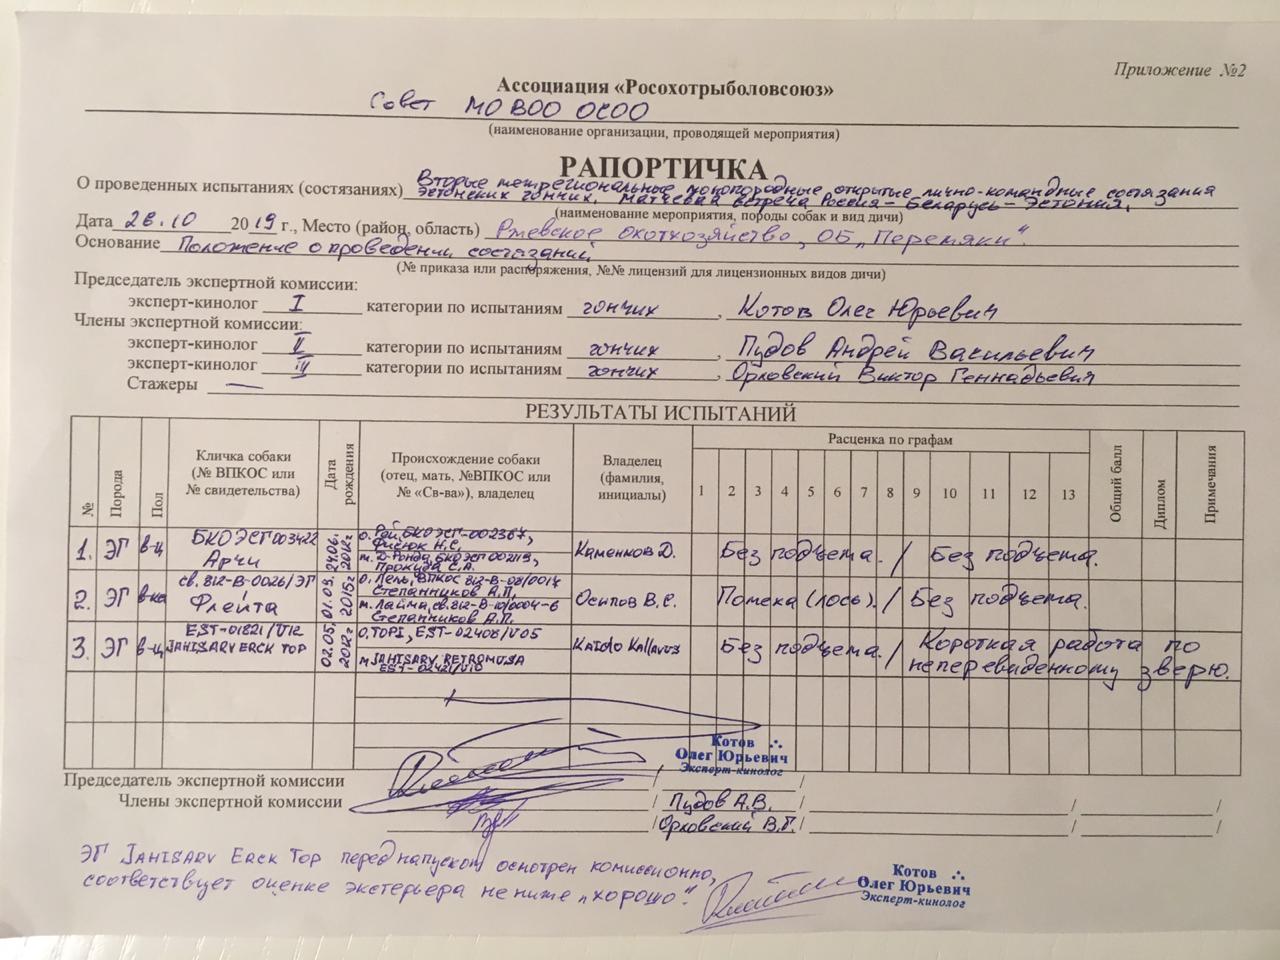 Приложение №2
Ассоциация «Росохотрыболовсоюз»
Совет МО ВОО ОСОО
(наименование организации, проводящей мероприятия)
РАПОРТИЧКА
О проведенных испытаниях (состязаниях) Вторые межрегиональные монопородные открытые лично-командные состязания
эстонских гончих. Матчевая встреча Россия – Беларусь – Эстония.
(наименование мероприятия, породы собак и вид дичи)
Дата 28.10 2019 г., Место (район, область) Ржевское охотхозяйство, ОБ „Перемяки".
Основание Положение о проведении состязаний
(№ приказа или распоряжения, №№ лицензий для лицензионных видов дичи)
Председатель экспертной комиссии:
эксперт-кинолог I категории по испытаниям гончих, Котов Олег Юрьевич
Члены экспертной комиссии:
эксперт-кинолог II категории по испытаниям гончих, Пудов Андрей Васильевич
эксперт-кинолог III категории по испытаниям гончих, Орловский Виктор Геннадьевич
Стажеры —
РЕЗУЛЬТАТЫ ИСПЫТАНИЙ
№ Порода Пол Кличка собаки (№ ВПКОС или № свидетельства) Дата рождения Происхождение собаки (отец, мать, №ВПКОС или № «Св-ва»), владелец Владелец (фамилия, инициалы) Расценка по графам Общий балл Диплом Примечания
1 2 3 4 5 6 7 8 9 10 11 12 13
1. ЭГ в-ц БКОЭСГ003422 Арчи 24.06. 2012г о. Рой, БКОЭСГ-002367, Фисюк Н.С. м. Д-Ронда, БКОЭСГ002119, Прокуда С.А. Каменков Д. Без подъема. / Без подъема.
2. ЭГ в-ка св. 812-В-0026/ЭГ Флейта 01.09. 2015г о. Лель, ВПКОС 812-В-08/0014 Степанников А.П. м. Лайма, св. 812-В-10/0004-6 Степанников А.П. Осипов В.С. Помеха (лось). / Без подъема.
3. ЭГ в-ц EST-01821/V12 JAHISARV ERCK TOP 02.05. 2012г О. TOPI, EST-02408/V05 м. JAHISARV RETROMUSA EST-02421/V10 Kaido Kallavus Без подъема. / Короткая работа по неперевиденному зверю.
Котов
Олег Юрьевич
Эксперт-кинолог
Председатель экспертной комиссии
Члены экспертной комиссии / Пудов А.В. / /
/ Орловский В.Г. / /
ЭГ JAHISARV ERCK TOP перед напуском осмотрен комиссионно,
соответствует оценке экстерьера не ниже „хорошо".
Котов
Олег Юрьевич
Эксперт-кинолог